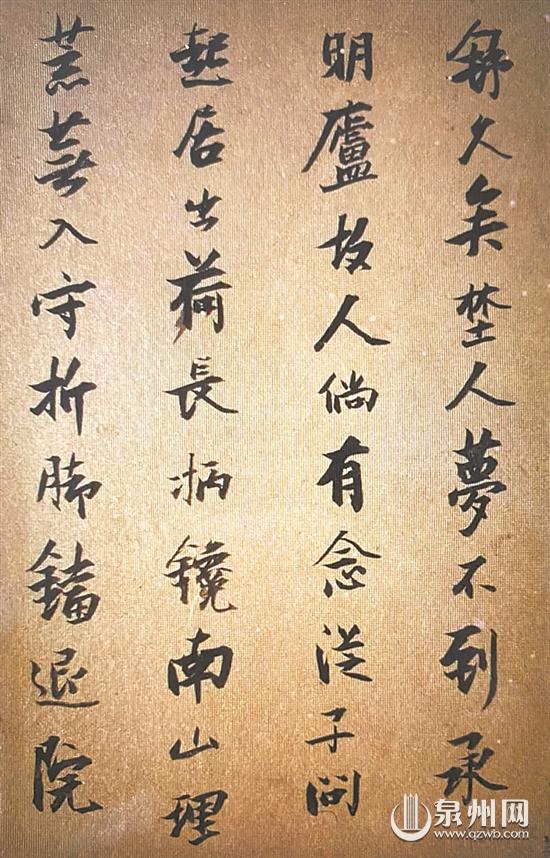 久矣埜人夢不到承
明廬故人倘有念從子問
起居出荷長柄鑱南山理
荒蕪入守折腳鐺退院
泉州网
www.qzwb.com